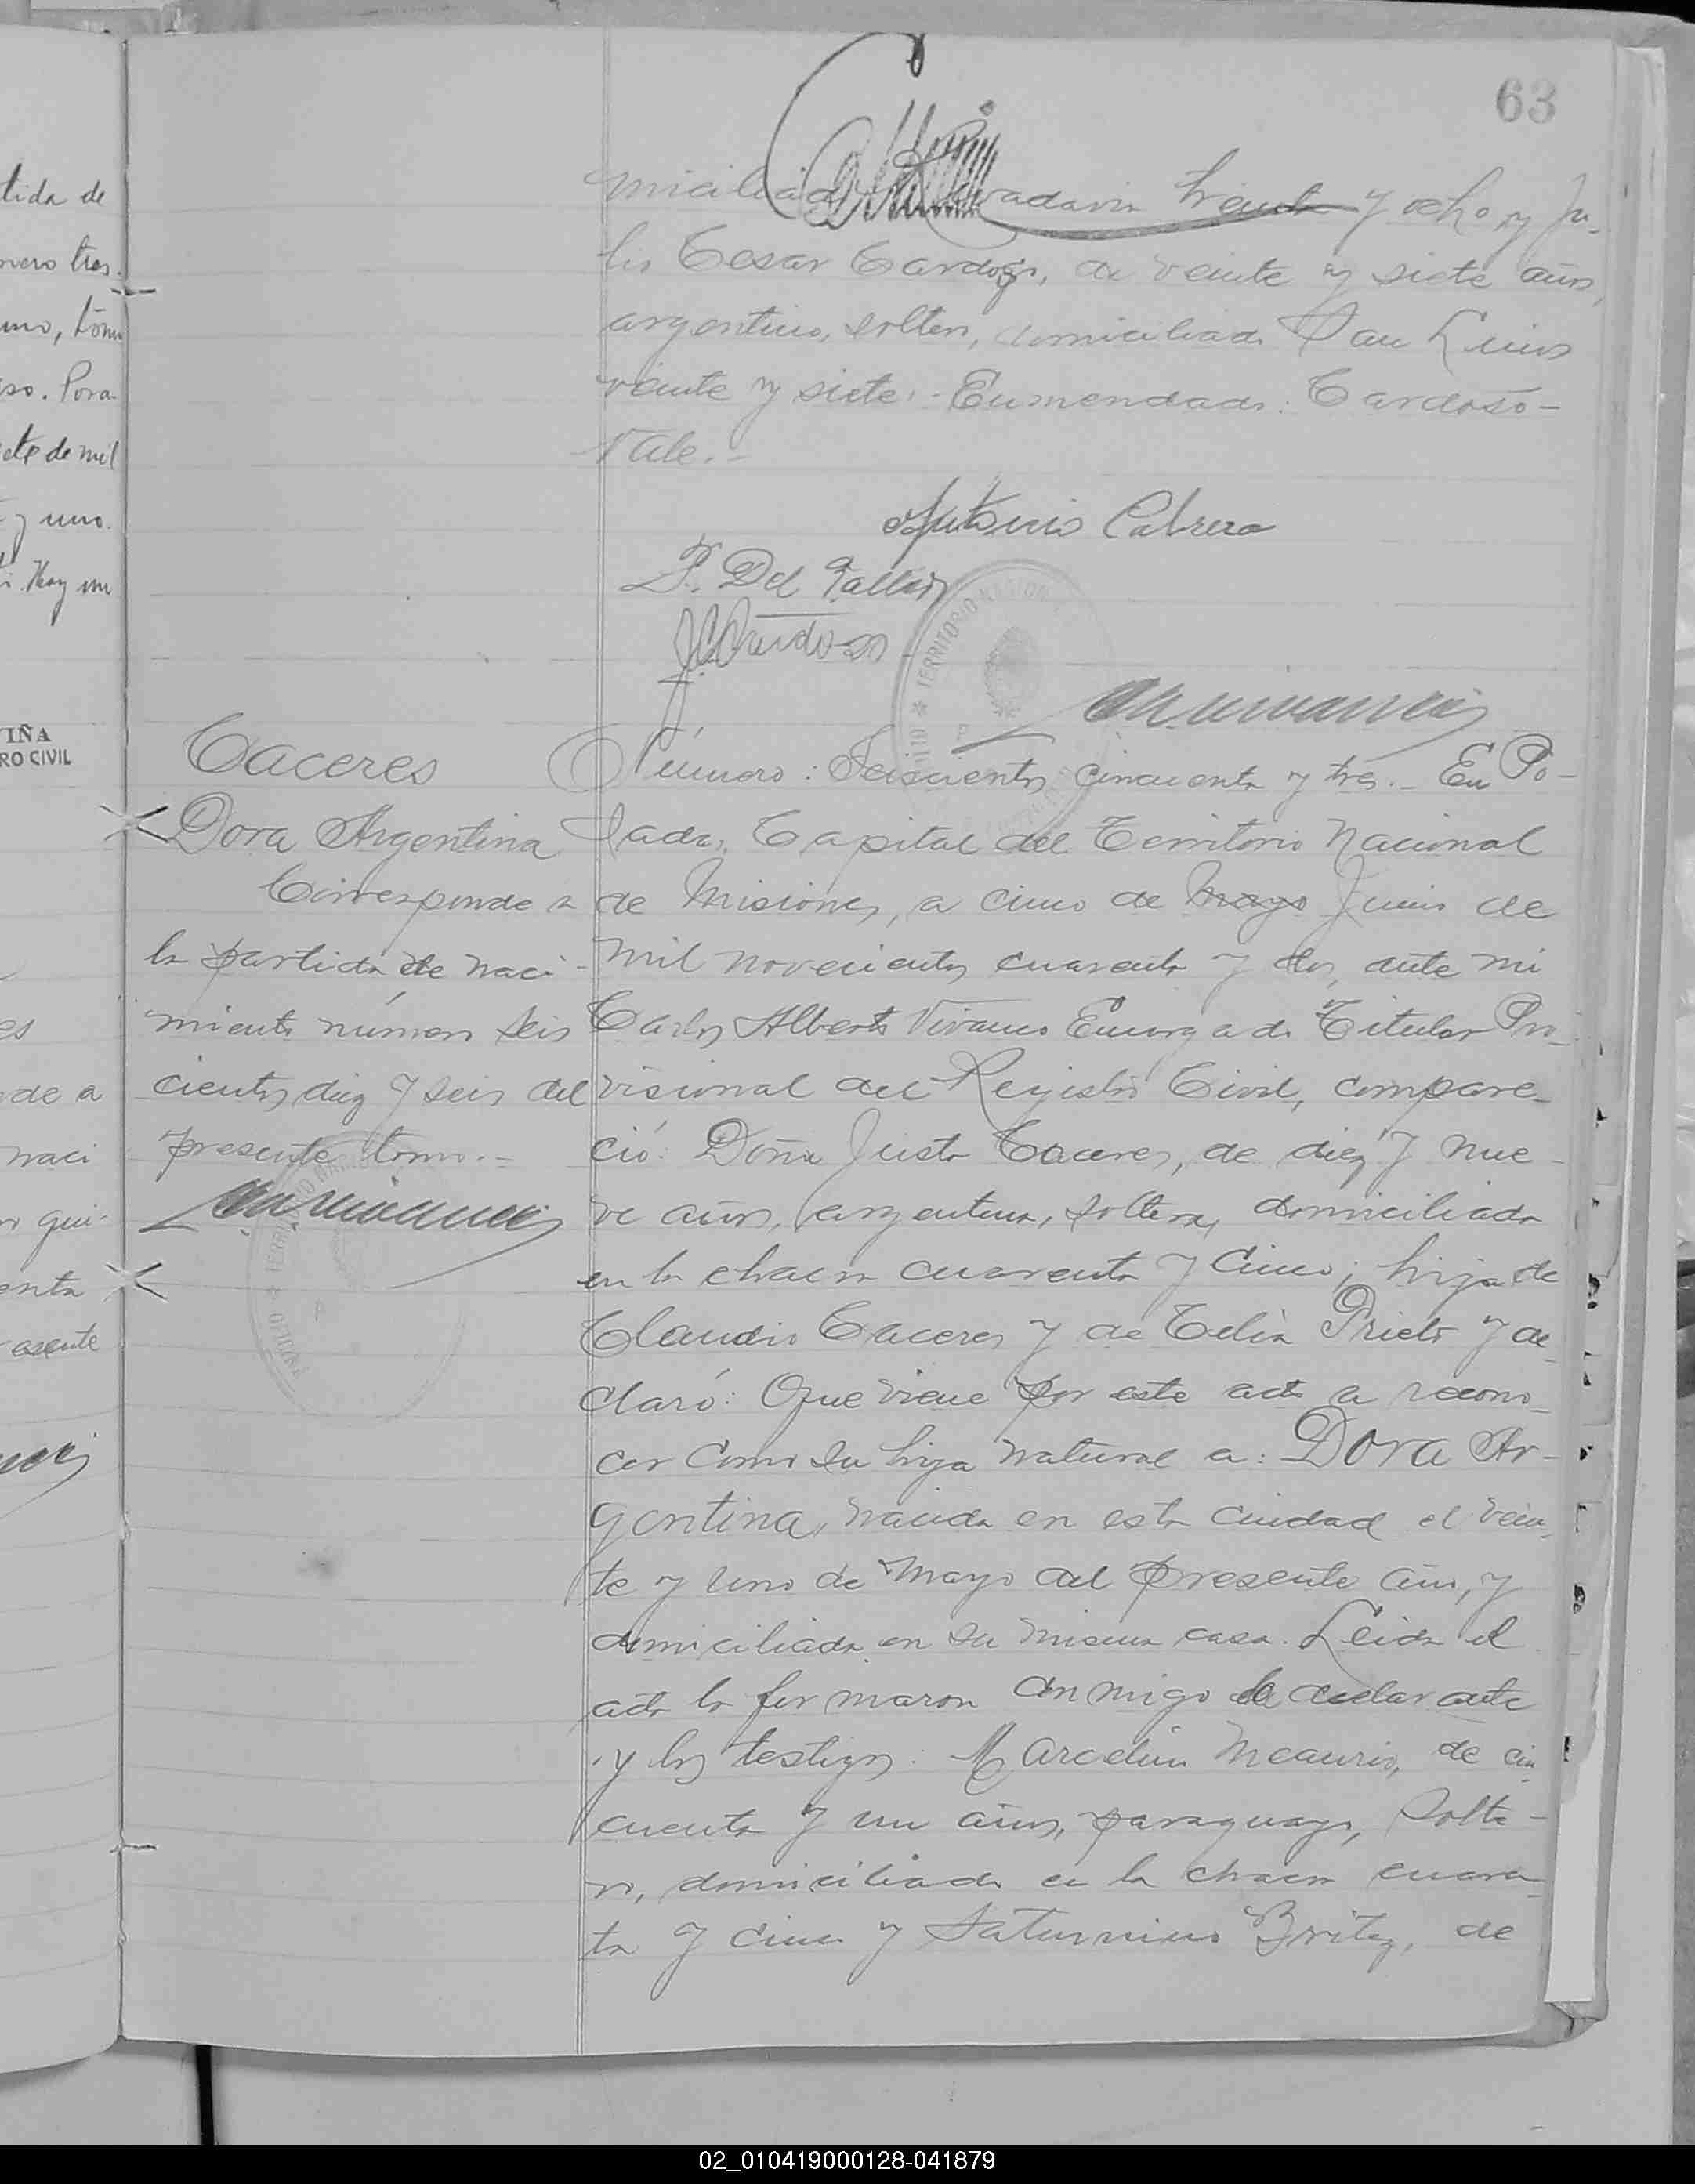 63
tida de
mero tres.
uno, tomo
so. Posa
ete de mil
y uno.
Hay un
VIÑA
RO CIVIL
es
de a
naci
qui-
enta
esente
miciliado Rivadavia treinta y ocho y Ju-
lio Cesar Cardoso, de veinte y siete años,
argentino, soltero, domiciliado San Luis
veinte y siete.- Enmendado: Cardoso-
Vale.-
Antonio Cabrera
P. Del Valle
J. C. Cardoso
TERRITORIO NACIONAL
Caceres
Dora Argentina
Corresponde a
la partida de naci-
miento número seis
cientos diez y seis del
presente tomo.-
Número: Seiscientos cincuenta y tres.- En Po-
sadas, Capital del Territorio Nacional
de Misiones, a cinco de mayo Junio de
mil novecientos cuarenta y dos, ante mi
Carlos Alberto Vivanco Encargado Titular Pro-
visional del Registro Civil, compare-
ció: Doña Justa Caceres, de diez y nue-
ve años, argentina, soltera, domiciliada
en la chacra cuarenta y cinco; hija de
Claudio Caceres y de Celia Prieto y de-
claró: Que viene por este acto a recono-
cer como su hija natural a: Dora Ar-
gentina, nacida en esta ciudad el vein-
te y uno de Mayo del presente año, y
domiciliada en su misma casa. Leida el
acta la firmaron conmigo la declarante
y los testigos: Marcelino Meaurio, de cin-
cuenta y un años, paraguayo, solte-
ro, domiciliado en la chacra cuaren-
ta y cinco y Saturnino Britez, de
02_010419000128-041879